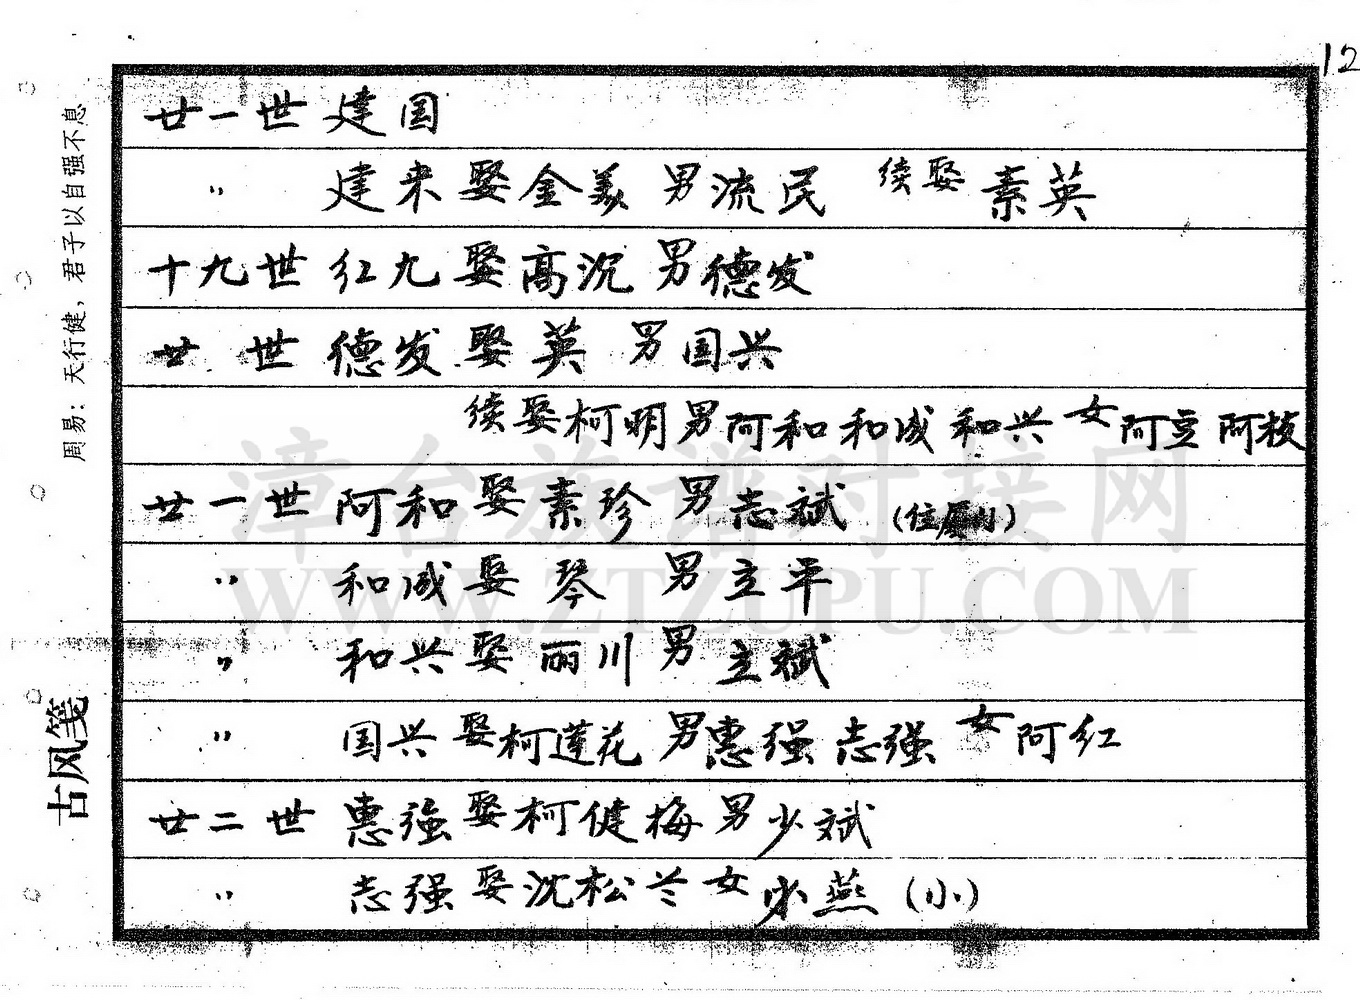 12
周易：天行健，君子以自强不息
古风笺
廿一世 建国
〃 建来 娶 金美 男 流民 续娶 素英
十九世 红九 娶 高沉 男 德发
廿 世 德发 娶 英 男 国兴
续娶 柯明 男 阿和 和成 和兴 女 阿豆 阿枝
廿一世 阿和 娶 素珍 男 志斌 （住厦门）
〃 和成 娶 琴 男 立平
〃 和兴 娶 丽川 男 立斌
〃 国兴 娶 柯莲花 男 惠强 志强 女 阿红
廿二世 惠强 娶 柯健梅 男 少斌
〃 志强 娶 沈松兰 女 少燕 （小）
漳台族谱对接网
WWW.ZTZUPU.COM